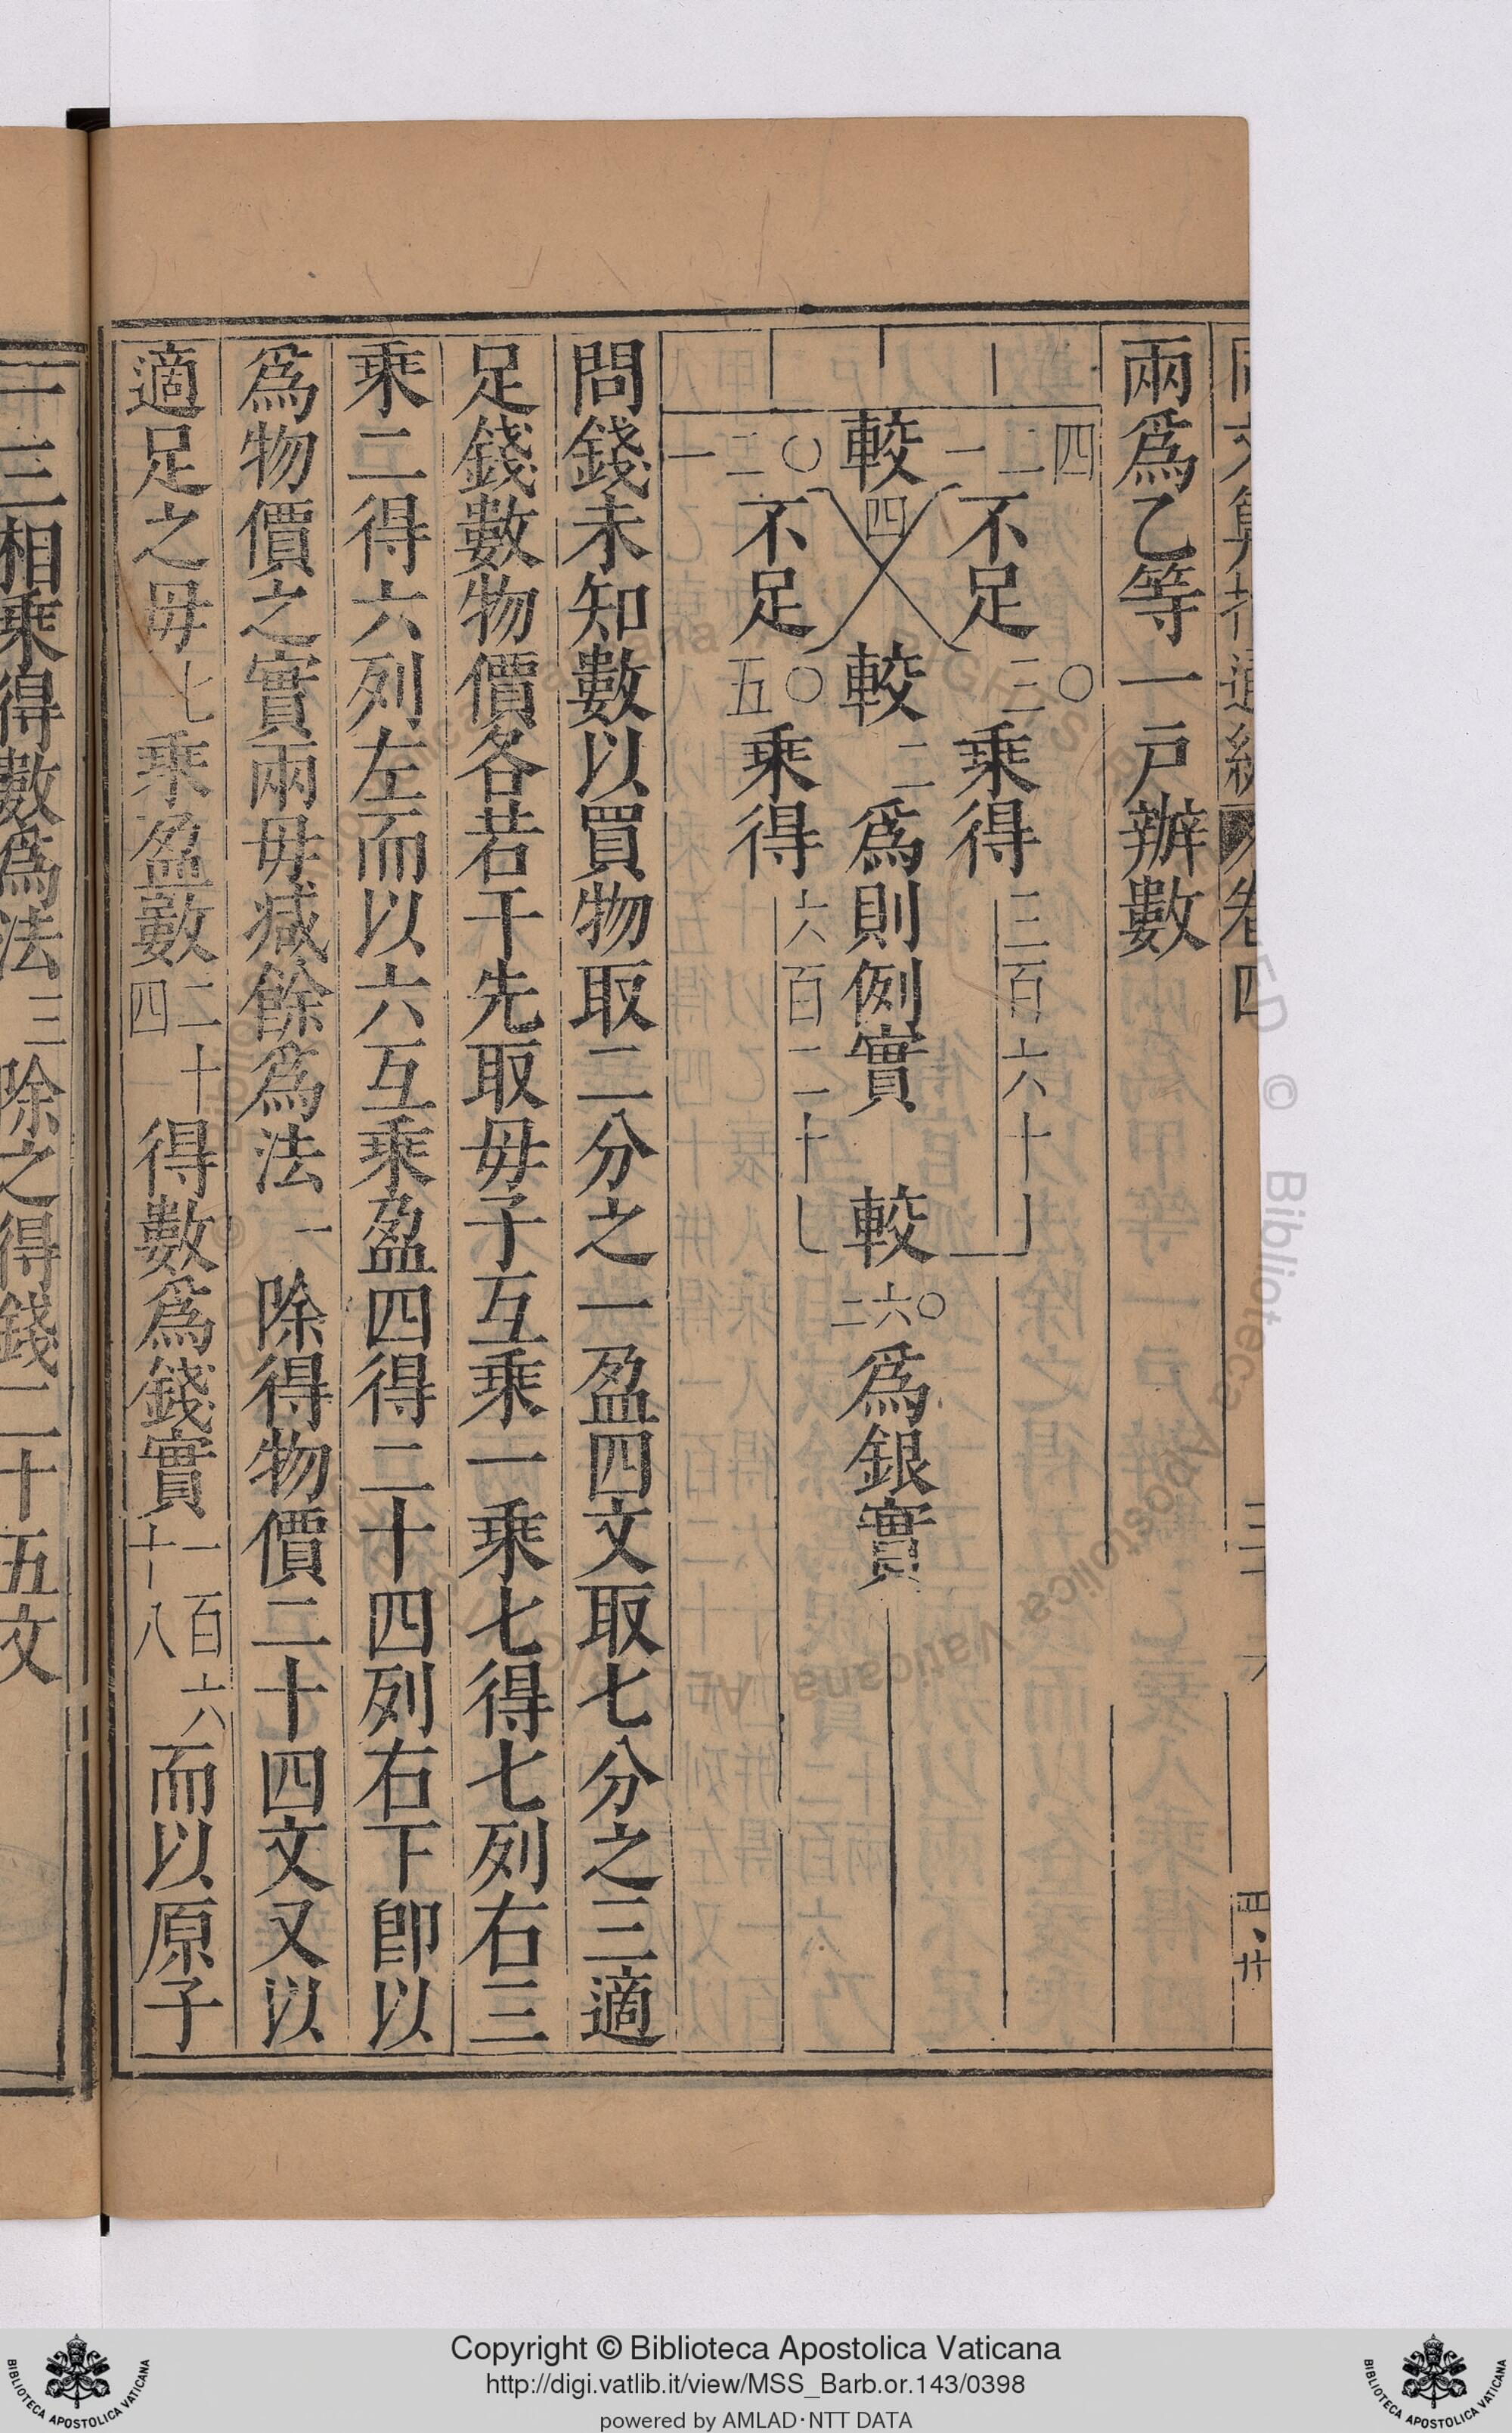 兩爲乙等一戶辦數
四
二
一
不足
〇
三
乘得
三百六十
較
四
較
二
爲則例實
較
〇
六
二
爲銀實
〇
二
一
不足
〇
五
乘得
六百二十
問錢未知數以買物取二分之一盈四文取七分之三適
足錢數物價各若干先取毋子互乘一乘七得七列右三
乘二得六列左而以六互乘盈四得二十四列右下卽以
爲物價之實兩毋減餘爲法一除得物價二十四文又以
適足之毋七乘盈數二十四得數爲錢實一百六十八而以原子
一三相乘得數爲法三除之得錢二十五文
Copyright © Biblioteca Apostolica Vaticana
http://digi.vatlib.it/view/MSS_Barb.or.143/0398
powered by AMLAD·NTT DATA
BIBLIOTECA APOSTOLICA VATICANA
BIBLIOTECA APOSTOLICA VATICANA